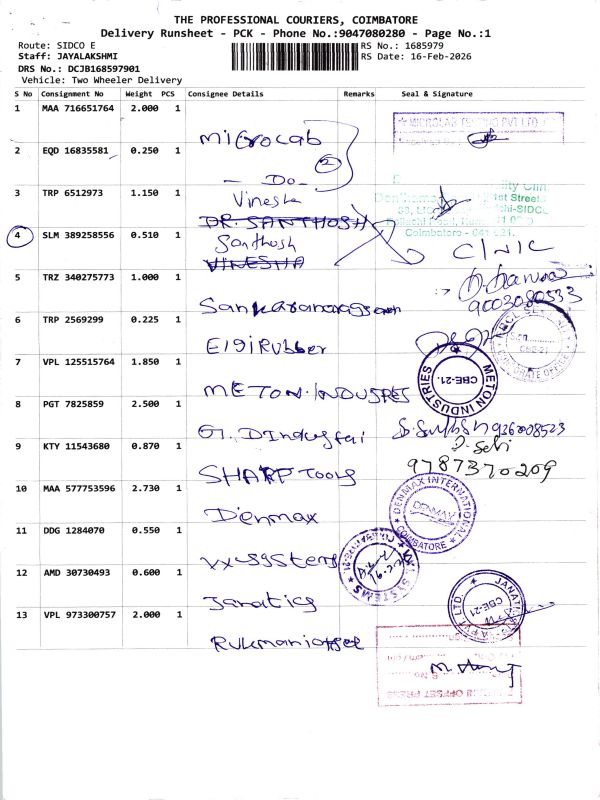 THE PROFESSIONAL COURIERS, COIMBATORE
Delivery Runsheet - PCK - Phone No.:9047080280 - Page No.:1
Route: SIDCO E
RS No.: 1685979
Staff: JAYALAKSHMI
RS Date: 16-Feb-2026
DRS No.: DCJB168597901
Vehicle: Two Wheeler Delivery
S No Consignment No Weight PCS Consignee Details Remarks Seal & Signature
1 MAA 716651764 2.000 1
Microlab
2 EQD 16835581 0.250 1
2
- Do -
3 TRP 6512973 1.150 1
Vinesha
DR. SANTHOSH
4 SLM 389258556 0.510 1
Santhosh
VINESHA
Coimbatore - 641 021.
CLINIC
5 TRZ 340275773 1.000 1
9003080533
Sankaranarayanan
6 TRP 2569299 0.225 1
Elgi Rubber
CORPORATE OFFICE
CBE-21
7 VPL 125515764 1.850 1
METON INDUSTRIES
CBE-21.
METON INDUSTRES
8 PGT 7825859 2.500 1
G.D Industrai
9 KTY 11543680 0.870 1
9787370209
SHARP Tools
10 MAA 577753596 2.730 1
DENMAX INTERNATIONAL
DENMAX
COIMBATORE
Denmax
11 DDG 1284070 0.550 1
SYSTEMS
12 AMD 30730493 0.600 1
Janatics
CBE-21
13 VPL 973300757 2.000 1
Rukmani offset
OFFSET PRESS